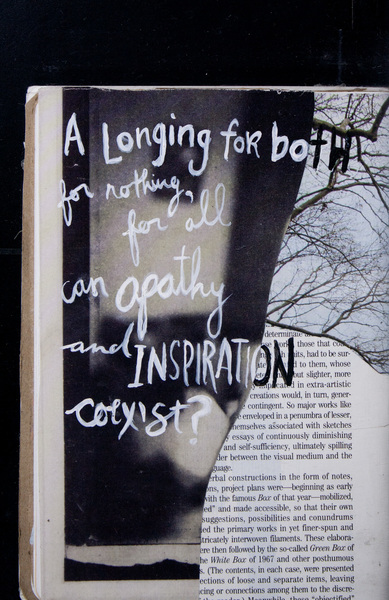 A Longing for both
for nothing,
for all
can apathy
and INSPIRATION
coexist?
determinate
those that
suits, had to be sur-
to them, whose
but slighter, more
implicated in extra-artistic
creations would, in turn, gener-
contingent. So major works like
enveloped in a penumbra of lesser,
themselves associated with sketches
essays of continuously diminishing
and self-sufficiency, ultimately spilling
between the visual and the
language.
verbal constructions in the form of notes,
project plans were—beginning as early
with the famous Box of that year—mobilized,
and made accessible, so that their own
suggestions, possibilities and conundrums
the primary works in yet finer-spun and
intricately interwoven filaments. These elabora-
then followed by the so-called Green Box of
the White Box of 1967 and other posthumous
(The contents, in each case, were presented
collections of loose and separate items, leaving
or connections among them to the discre-
Meanwhile, these "objectified"